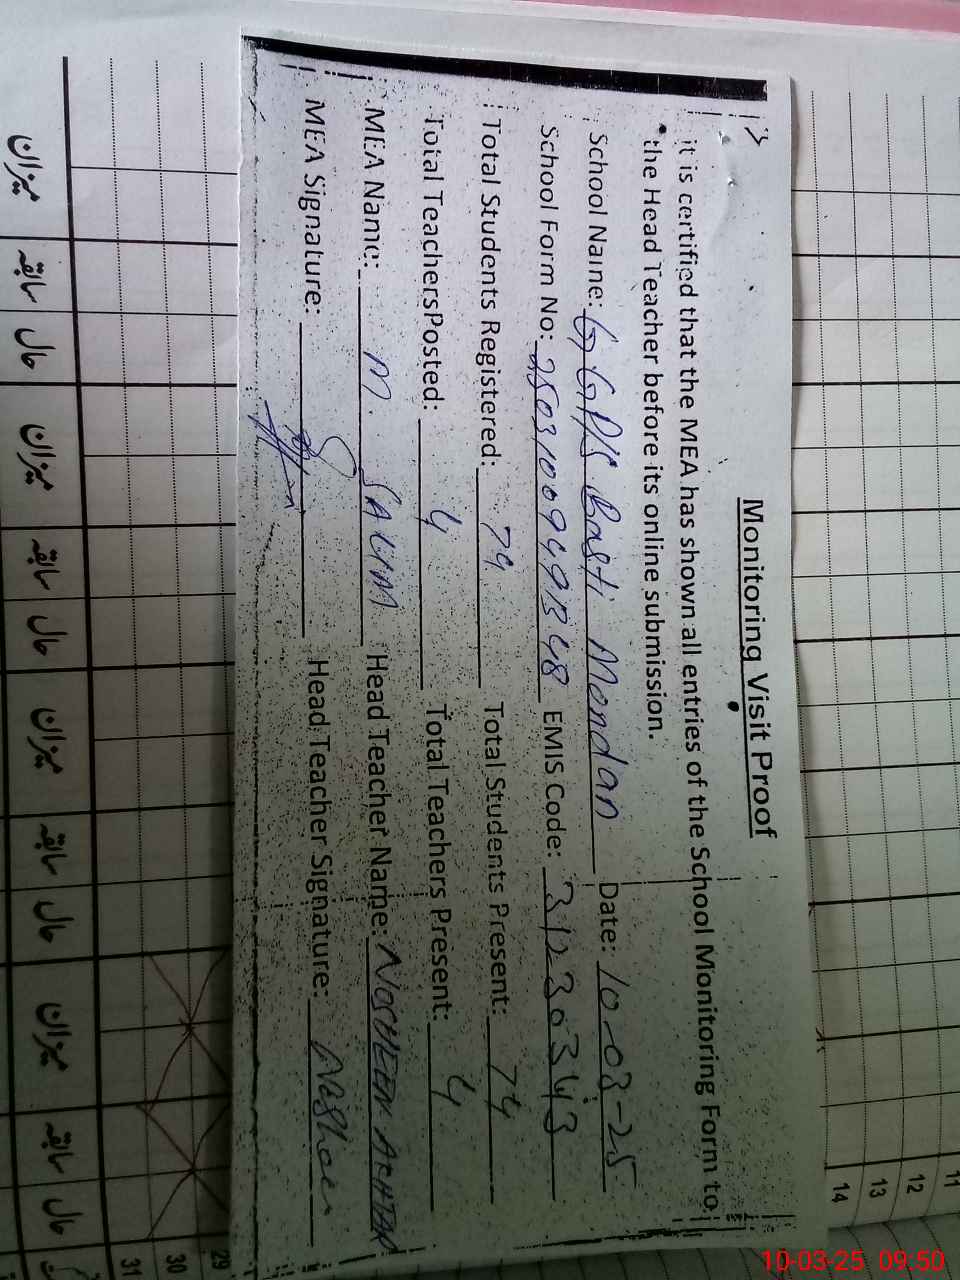 Monitoring Visit Proof
it is certified that the MEA has shown all entries of the School Monitoring Form to
the Head Teacher before its online submission.
School Name: GGPS Basti Mondan Date: 10-03-25
School Form No: EMIS Code: 31230343
Total Students Registered: 74 Total Students Present: 74
Total TeachersPosted: 4 Total Teachers Present: 4
MEA Name: M. SALIM Head Teacher Name: NOSHEEN AKHTAR
MEA Signature: Head Teacher Signature: Nosheen
11
12
13
14
29
30
31
میزان سابقہ حال میزان سابقہ حال میزان سابقہ حال میزان سابقہ حال
10-03-25 09:50